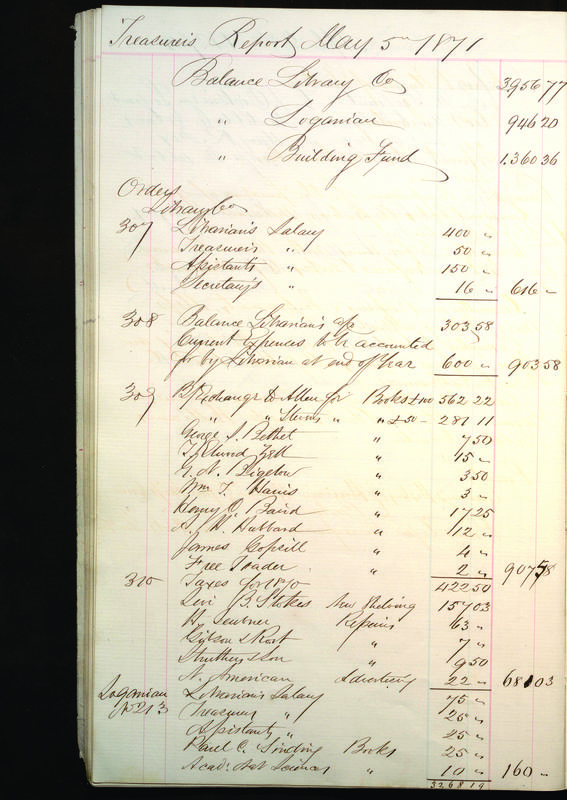 Treasurer's Report May 5th 1871
Balance Library Co 3,956 77
" Loganian 946 20
" Building Fund 1.360 36
Orders
Library Co
307 Librarian's Salary 400 "
Treasurer's " 50 "
Assistant's " 150 "
Secretary's " 16 " 616 "
308 Balance Librarian's a/c 303 58
Current Expences to be accounted
for by Librarian at end of Year 600 " 903 58
309 B/Exchange to Allen for Books £100 562 22
" " Stevens " " £50 - 281 11
George J. Bethel " 7 50
T. Elwood Zell " 15 "
Bigelow " 3 50
Wm T. Harris " 3 "
Henry C. Baird " 17 25
Hubbard " 12 "
James Gopsill " 4 "
Free Trader " 2 " 907 58
310 Taxes for 1870 422 50
Levi B. Stokes New Shelving 157 03
H. Leubner Repairs 63 "
Gibson & Kost " 7 "
Struthers & Son " 9 50
N. American Advertising 22 " 681 03
Loganian Librarian's Salary 75 "
No 213 Treasurer " 25 "
Assistants " 25 "
Paul C. Sinding Books 25 "
Acad. Nat Sciences " 10 " 160 "
3268 19